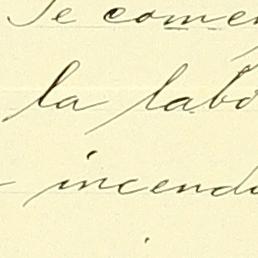 Se comen
la labo
incendi